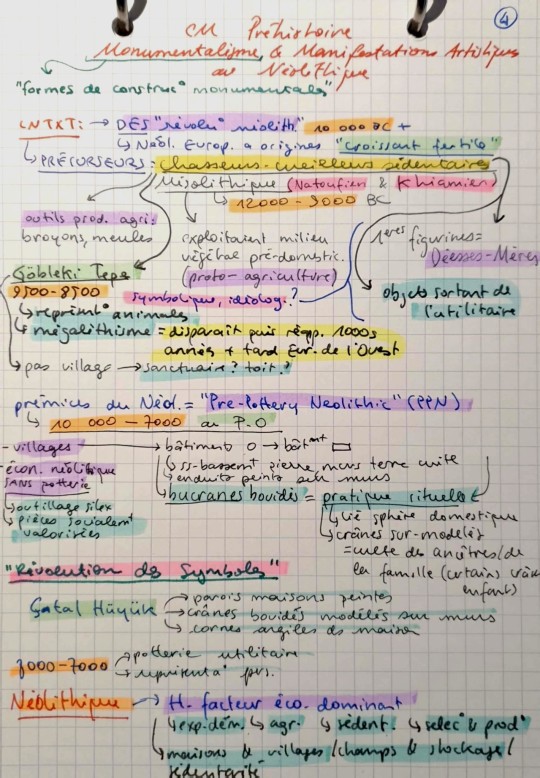 ④
CM Préhistoire
Monumentalisme & Manifestations Artistiques
au Néolithique
"formes de construc° monumentales"
CNTXT: → DES "révolu° néolith." 10 000 BC +
↳ Néol. Europ. a origines "Croissant fertile"
↳ PRÉCURSEURS: chasseurs-cueilleurs sédentaires
Mésolithique (Natoufien & Khiamien)
↳ 12000 - 9000 BC
outils prod. agri:
broyons, meules
exploitaient milieu
végétal pré-domestic.
(proto-agriculture)
1ères figurines =
Déesses-Mères
objets sortant de
l'utilitaire
Göbleki Tepe
9500-8500
symbolique, idéolog.?
↳ représent° animales
↳ mégalithisme = disparaît puis réapp. 1000s
années + tard Eur. de l'Ouest
↳ pas village → sanctuaire? toit?
prémices du Néol. = "Pre-Pottery Neolithic" (PPN)
↳ 10 000 - 7000 au P.O
- villages → bâtiment O → bâtmt ▭
↳ ss-bassemt pierre, murs terre cuite
↳ enduits peints sur murs
↳ bucranes bovidés = pratique rituelle
- écon. néolithique
SANS potterie
↳ outillage silex
↳ pièces socialemt
valorisées
↳ lié sphère domestique
↳ crânes sur-modelés
= culte des ancêtres/de
la famille (certains crânes
enfants)
"Révolution des Symboles"
Çatal Hüyük → parois maisons peintes
→ crânes bovidés modelés sur murs
→ cornes argiles ds maison
→ potterie utilitaire
→ représenta°
Néolithique → H. facteur éco. dominant
↳ exp. dém. ↳ agr. ↳ sédent. ↳ sélec° & prod°
↳ maisons & villages / champs & stockage /
sédentarité